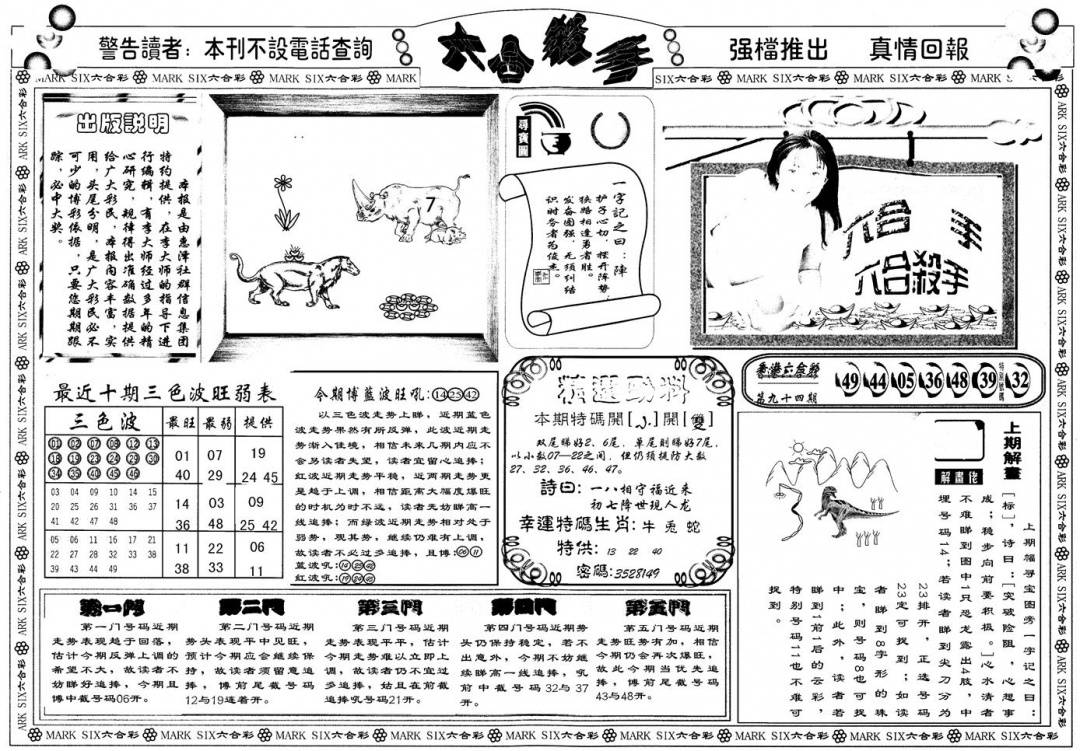 警告讀者：本刊不設電話查詢
六合殺手
强檔推出 真情回報
MARK SIX六合彩 MARK SIX六合彩 MARK SIX六合彩 MARK
SIX六合彩 MARK SIX六合彩 MARK SIX六合彩
出版説明
本报是由惠泽社群信息集团
特约提供，在李大师的指导下进
行编辑，有李大师经过多年的精
心研究，规律得出准确数据提供
给广大彩民，本报内容丰富，实
用，头尾分明，是广大彩民必不
可少的博彩依据，只要您期期跟
踪，必中大奖。
7
尋寶圖
一字記之曰：陣
护子心切，摆开阵势，
狭路相逢勇者胜。
发奋图强，无须纠结
识时务者为俊杰。
六合 手
六合殺手
香港六合彩
第九十四期
49 44 05 36 48 39 特别號碼 32
最近十期三色波旺弱表
三色波 最旺 最弱 提供
01 02 07 08 12 13
18 19 23 24 29 30
34 35 40 45 46
01 07 19
40 29 24 45
03 04 09 10 14 15
20 25 26 31 36 37
41 42 47 48
14 03 09
36 48 25 42
05 06 11 16 17 21
22 27 28 32 33 38
39 43 44 49
11 22 06
38 33 11
今期博蓝波旺吼：14 25 42
以三色波走势上睇，近期蓝色
波走势果然有所反弹，此波近期走
势渐入佳境，相信未来几期内应不
会另读者失望，读者宜留心追捧；
红波近期走势平稳，近两期走势更
是趋于上调，相信距离大幅度爆旺
的时机为时不远，读者无妨睇高一
线追捧；而绿波近期走势相对处于
弱势，观其势，继续仍难有上调，
故读者不必过多追捧，且博：06 11
蓝波吼：
红波吼：
精選動料
本期特碼開[小]開[雙]
双尾睇好2、6尾，单尾则睇好7尾，
以小数07—22之间，但仍须提防大数
27、32、36、46、47。
詩曰：一八相守福近来
初七降世现人龙
幸運特碼生肖：牛 兎 蛇
特供：13 22 40
密碼：3528149
上期解畫
解畫佬
上期福寻宝图寻一字记之曰：
[标]，诗曰：[突破险阻，心想事
成；稳步向前要积极。]心水清者
不难睇到图中1只恐龙露出4肢，中
埋号码14；若读者睇到尖刀分为
23排开，正选号码
23定可找到；如读
者睇到8字形的珠
宝，则号码8也可找
中；此外，读者若
睇到1前1后的云彩，
特别号码11也不难可
捉到。
第一門
第一门号码近期
走势表现趋于回落，
估计今期反弹上调的
希望不大，故读者不
妨睇好追捧，今期且
博中截号码06开。
第二門
第二门号码近期
势头表现平中见旺，
预计今期应会继续保
持，故读者须留意追
捧，博前尾截号码
12与19连着开。
第三門
第三门号码近期
走势表现平平，估计
今期走势难以立即上
调，故读者仍不宜过
多追捧，姑且在前截
追捧吼号码21开。
第四門
第四门号码近期
头仍保持稳定，若不
出意外，今期不妨继
续睇高一线追捧，吼
前中截号码32与37
开。
第五門
第五门号码近期
走势旺势有加，相信
今期仍会再次爆旺，
故此今期当优先追
捧，博前尾截号码
43与48开。
MARK SIX六合彩 MARK SIX六合彩 MARK SIX六合彩 MARK SIX六合彩 MARK SIX六合彩 MARK SIX六合彩 MARK SIX六合彩 MARK SIX六合彩